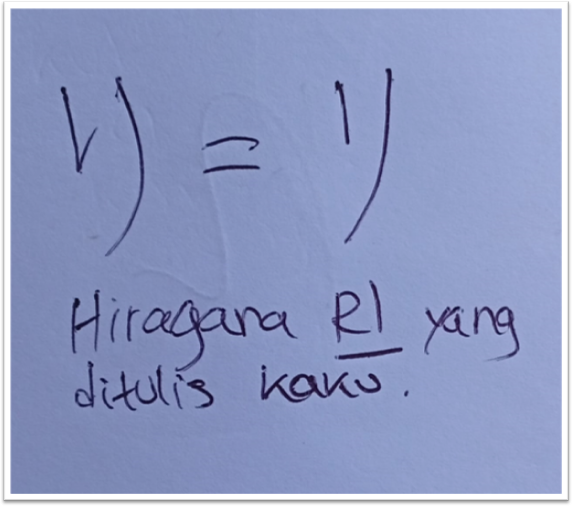 り = リ
Hiragana RI yang
ditulis kaku.